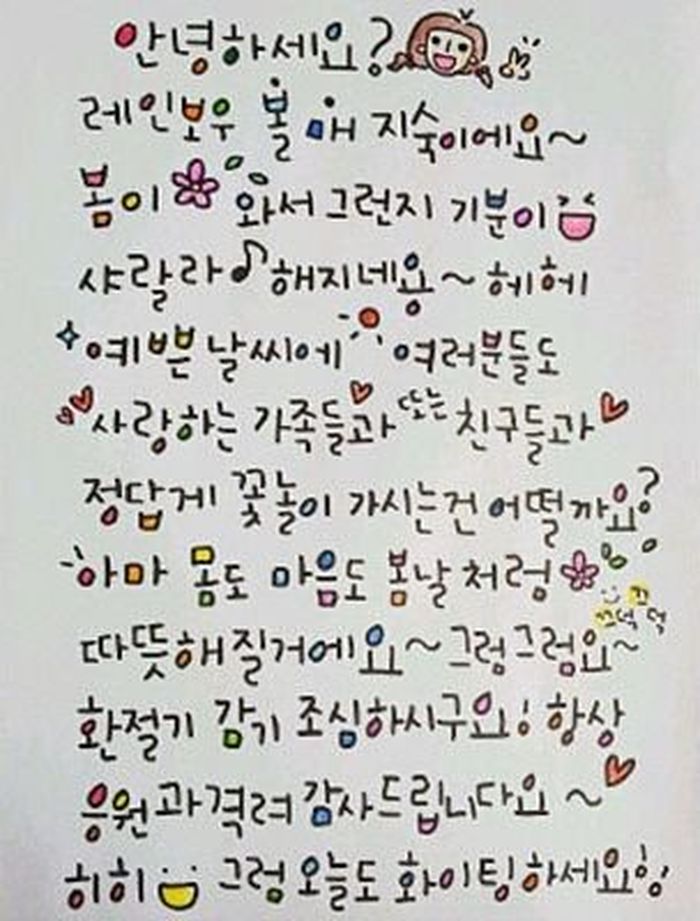 안녕하세요?
레인보우 볼매 지숙이에요~
봄이 와서 그런지 기분이
샤랄라♪해지네용~ 헤헤
예쁜 날씨에 여러분들도
사랑하는 가족들과 또는 친구들과
정답게 꽃놀이 가시는건 어떨까요?
아마 몸도 마음도 봄날처럼
끄덕 끄덕
따뜻해질거에요~그럼그럼요~
환절기 감기 조심하시구요! 항상
응원과 격려 감사드립니다요~
히히 그럼 오늘도 화이팅하세요!